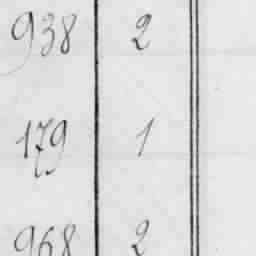 938 2
179 1
968 2